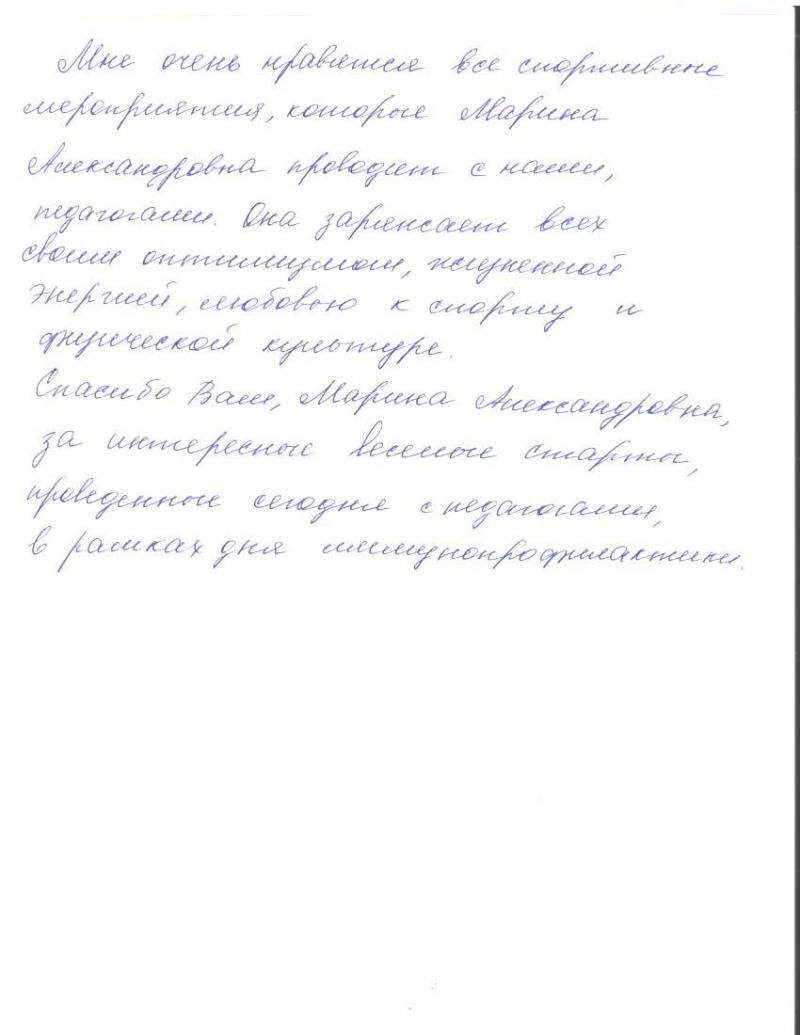 Мне очень нравятся все спортивные
мероприятия, которые Марина
Александровна проводит с нами,
педагогами. Она заряжает всех
своим оптимизмом, жизненной
энергией, любовью к спорту и
физической культуре.
Спасибо Вам, Марина Александровна,
за интересные веселые старты,
проведенные сегодня с педагогами,
в рамках дня иммунопрофилактики.